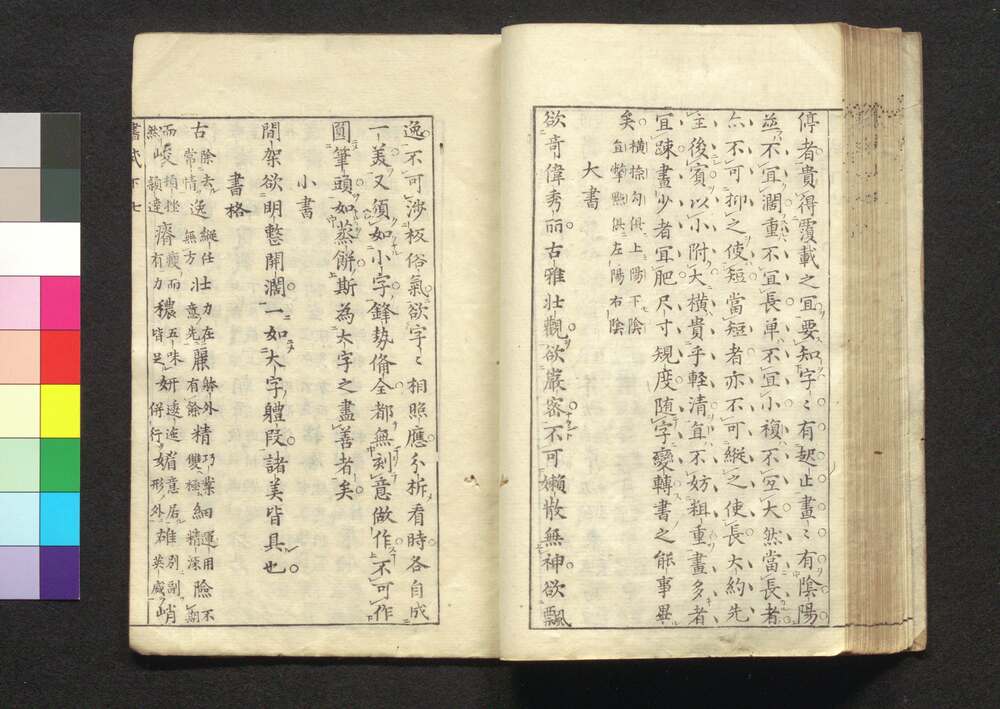 停者貴得覆載之宜要知字〻有起止畫〻有陰陽
並不宜濶重不宜長單不宜小複不宜大然當長者
亦不可抑之使短當短者亦不可縱之使長大約先
主後賓以小附大橫貴乎輕清直不妨粗重畫多者
宜踈畫少者宜肥尺寸規度随字變轉書之能事畢
矣 橫捺勾俱上陽下陰
直撇點俱左陽右陰
大書
欲奇偉秀丽古雅壮觀欲嚴密不可嬾散無神欲飄
逸不可涉板俗氣欲字〻相照應分拆看時各自成
一美又須如小字鋒勢俻全都無刻意做作不可作
圓筆頭如蒸餅斯為大字之盡善者矣
小書
間架欲明整開濶一如大字軆段諸美皆具也
書格
古除去常情逸縱任無方壮力在意先麗躰外有餘精巧業雙極細運用精深險不期
而然峻頓挫穎達瘠瘦而有力穠五味皆足妍逶迤併行媚意居形外雄別副英威峭
書式下七